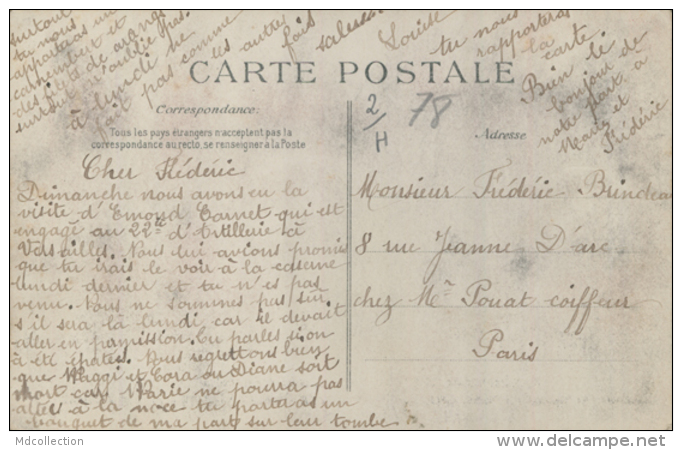 surtout
tu nous
apporteras un
camembert et
des filets de
surtout n'oublie pas.
à lundi ne
fait pas comme
les autres
fois
salue
Louise
tu nous
rapporteras
la
carte.
Bien le
bonjour de
notre part à
Marie et
Frédéric
CARTE POSTALE
2/H
78
Correspondance:
Tous les pays étrangers n'acceptent pas la
correspondance au recto, se renseigner à la Poste
Adresse
Cher Frédéric
Dimanche nous avons eu la
visite d'Emond Carnet qui est
engagé au 22me d'Artillerie à
Versailles. Nous lui avions promis
que tu irais le voir à la caserne
lundi dernier et tu n'es pas
venu. Nous ne sommes pas sûr
s'il sera là lundi car il devait
aller en permission. Tu parles si on
à été épatés. Nous regrettons bien
que et Cora ou Diane soit
mort car Marie ne pourra pas
aller à la noce tu porteras un
bouquet de ma part sur leur tombe
Monsieur Frédéric Brindeau
8 rue Jeanne D'arc
chez Mr Pouat coiffeur
Paris
Mdcollection
http://www.delcampe.net